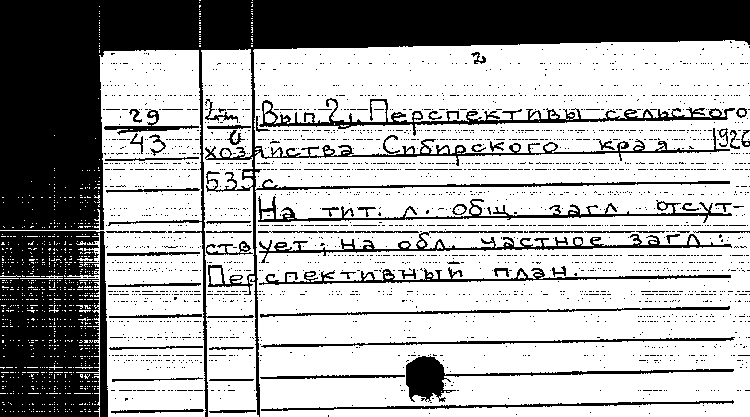 2
29
43
Вып. 2. Перспективы сельского
хозяйства Сибирского края. 1926
535 с.
На тит. л. общ. загл. отсут-
ствует; на обл. частное загл.:
Перспективный план.